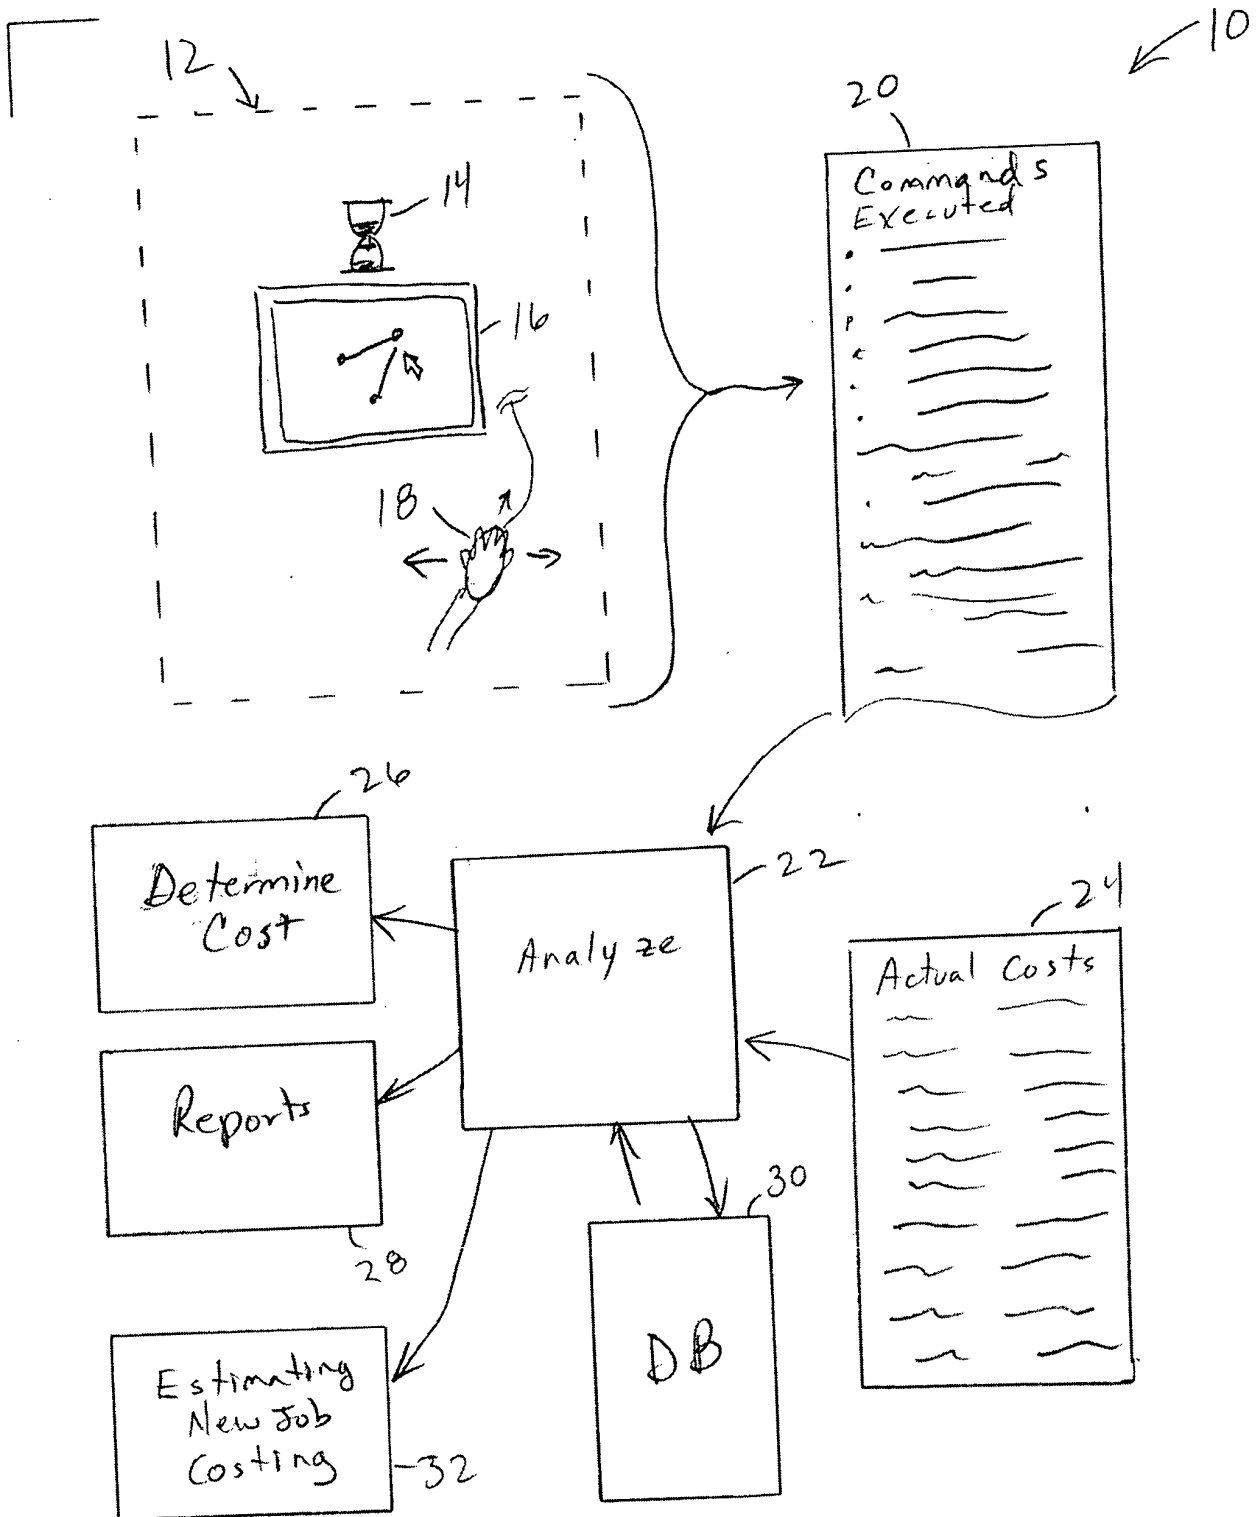 10
12
20
Commands
Executed
14
16
18
26
Determine
Cost
22
Analyze
24
Actual Costs
Reports
28
30
DB
Estimating
New Job
Costing
32